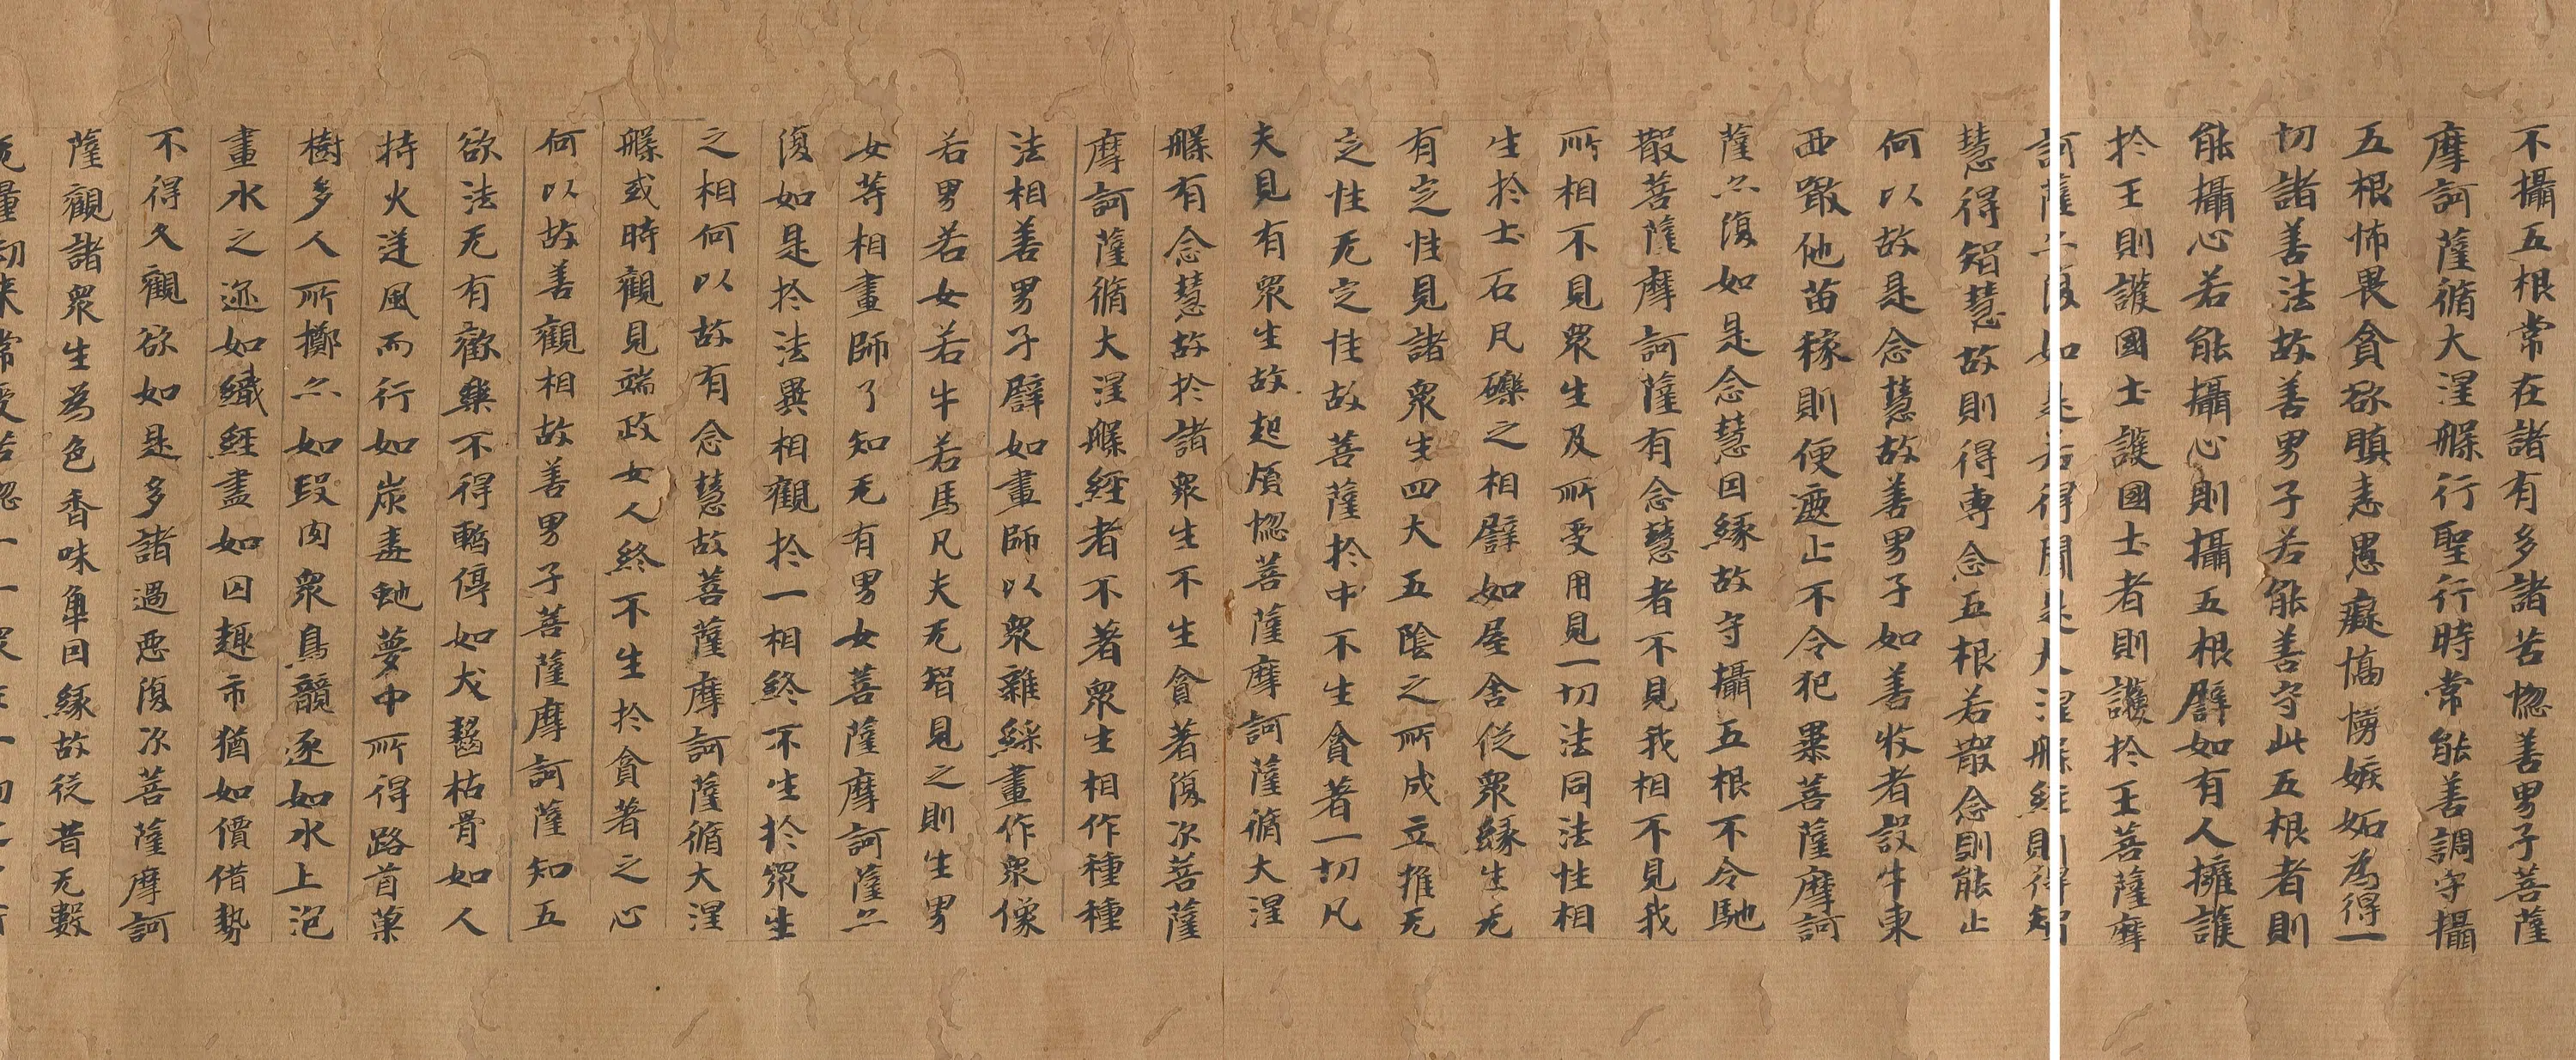 不攝五根常在諸有多諸苦惱善男子菩薩
摩訶薩脩大涅槃行聖行時常能善調守攝
五根怖畏貪欲瞋恚愚癡憍慢嫉妬為得一
切諸善法故善男子若能善守此五根者則
能攝心若能攝心則攝五根譬如有人擁護
扵王則護國土護國土者則護扵王菩薩摩
訶薩亦復如是若得聞是大涅槃經則得智
慧得智慧故則得專念五根若散念則能止
何以故是念慧故善男子如善牧者設牛東
西噉他苗稼則便遮止不令犯暴菩薩摩訶
薩亦復如是念慧因緣故守攝五根不令馳
散菩薩摩訶薩有念慧者不見我相不見我
所相不見眾生及所受用見一切法同法性相
生扵土石凡礫之相譬如屋舍從眾緣生无
有定性見諸眾生四大五陰之所成立推无
定性无定性故菩薩扵中不生貪著一切凡
夫見有眾生故起煩惱菩薩摩訶薩脩大涅
槃有念慧故扵諸眾生不生貪著復次菩薩
摩訶薩脩大涅槃經者不著眾生相作種種
法相善男子譬如畫師以眾雜綵畫作眾像
若男若女若牛若馬凡夫无智見之則生男
女等相畫師了知无有男女菩薩摩訶薩亦
復如是扵法異相觀扵一相終不生扵眾生
之相何以故有念慧故菩薩摩訶薩脩大涅
槃或時觀見端政女人終不生扵貪著之心
何以故善觀相故善男子菩薩摩訶薩知五
欲法无有歡樂不得暫停如犬齧枯骨如人
持火逆風而行如炭毒虵夢中所得路首菓
樹多人所擲亦如段肉眾鳥競逐如水上泡
畫水之迹如織經盡如囚趣市猶如價借勢
不得久觀欲如是多諸過惡復次菩薩摩訶
薩觀諸眾生為色香味觸因緣故從昔无數